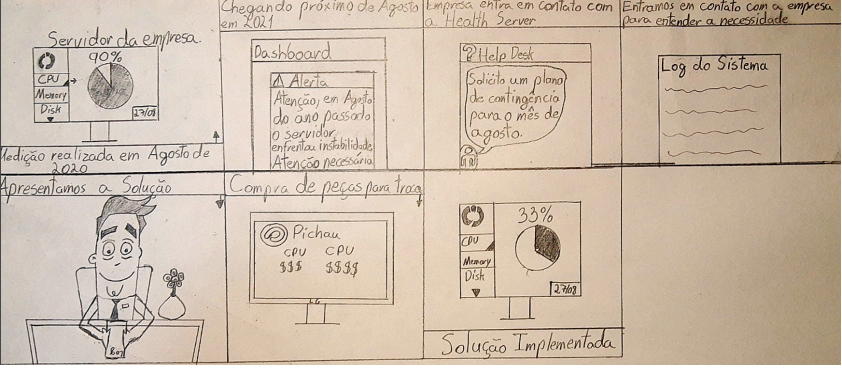 Servidor da empresa.
90%
CPU
Memory
Disk
27/08
Medição realizada em Agosto de
2020
Chegando próximo de Agosto
em 2021
Dashboard
⚠ Alerta
Atenção, em Agosto
do ano passado
o servidor
enfrentou instabilidade
Atenção necessária
Empresa entra em contato com
a Health Server
Help Desk
Solicito um plano
de contingência
para o mês de
agosto.
Entramos em contato com a empresa
para entender a necessidade
Log do Sistema
Apresentamos a Solução
Compra de peças para troca
Pichau
CPU CPU
$$$ $$$$
33%
CPU
Memory
Disk
27/08
Solução Implementada